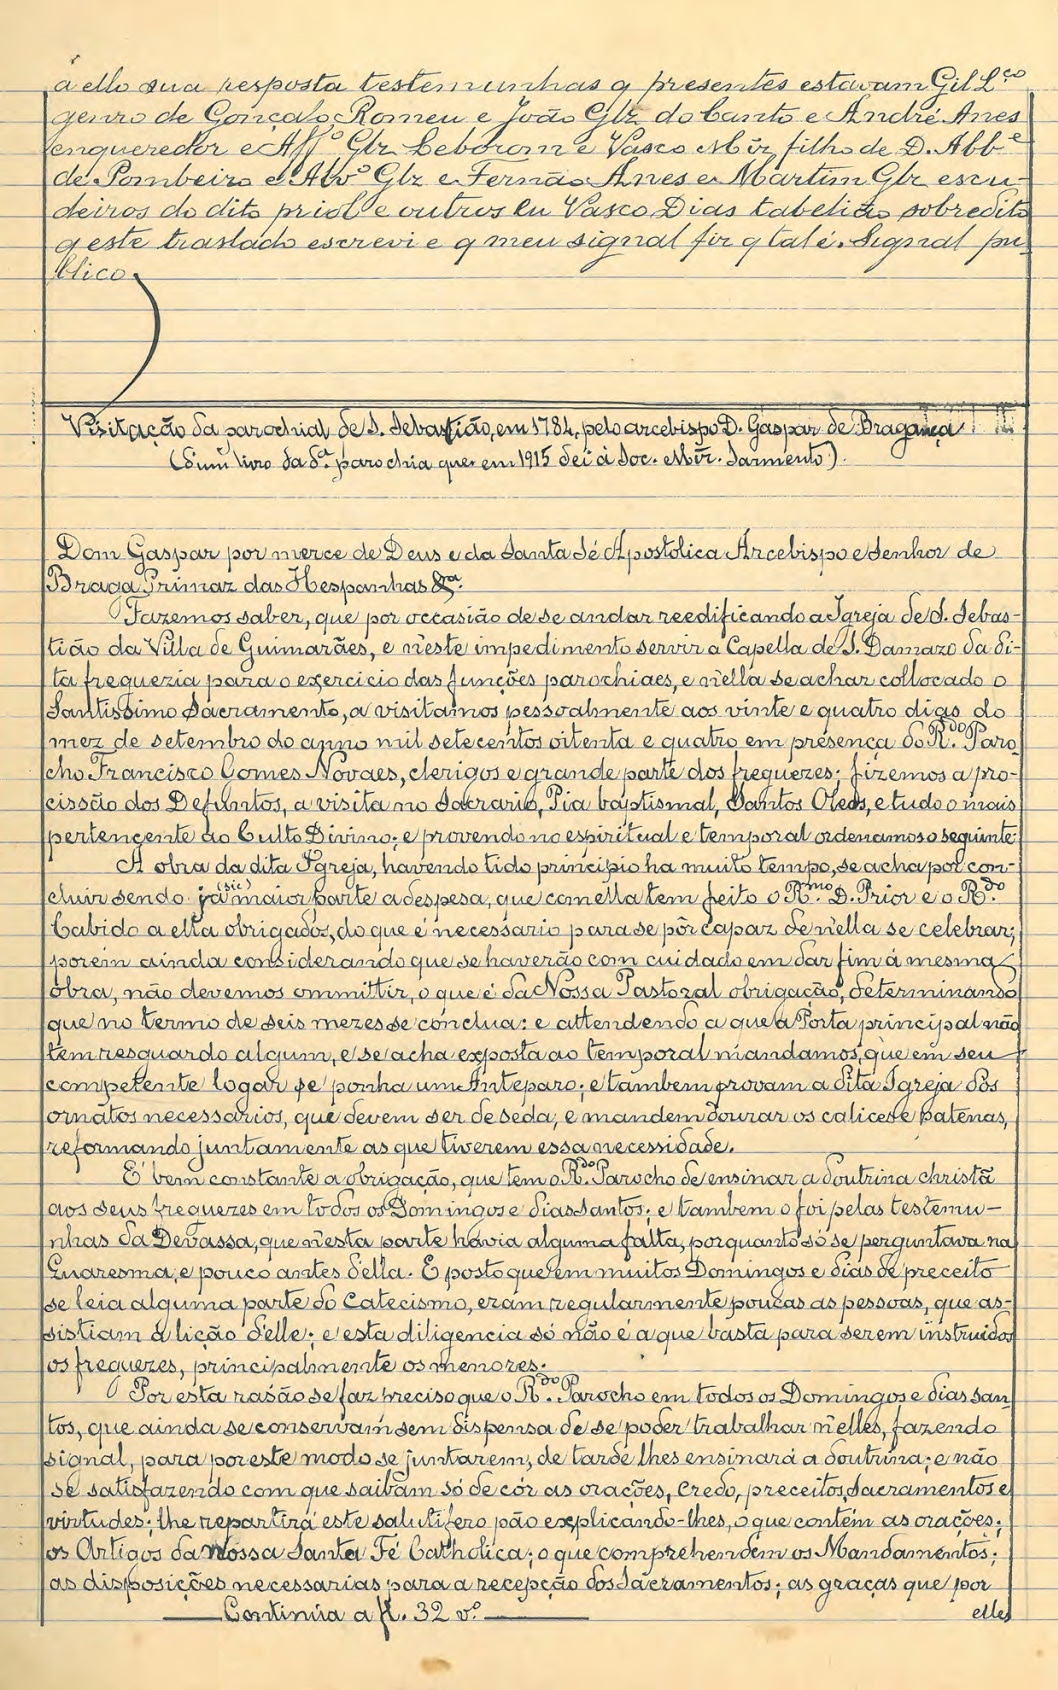 a ello sua resposta testemunhas q presentes estavam Gil L.ço
genro de Gonçalo Romeu e João Glz do Canto e André Anes
enqueredor e Aff.º Glz Leborom e Vasco Miz filho de D. Abb.e
de Pombeiro e Alv.º Glz e Fernão Anes e Martim Glz escu-
deiros do dito priol e outros Eu Vasco Dias tabelião sobredito
q este traslado escrevi e q meu signal fiz q tal é. Signal pu-
blico.
Visitação da parochial de S. Sebastião, em 1784, pelo arcebispo D. Gaspar de Bragança
(D'um livro da d.ª parochia que em 1915 dei á Soc. Mãr. Sarmento).
Dom Gaspar por merce de Deus e da Santa Sé Apostolica Arcebispo e Senhor de
Braga Primaz das Hespanhas &ª.
Fazemos saber, que por occasião de se andar reedificando a Igreja de S. Sebas-
tião da Villa de Guimarães, e n'este impedimento servir a Capella de S. Damazo da di-
ta freguezia para o exercicio das funções parochiaes, e n'ella se achar collocado o
Santissimo Sacramento, a visitamos pessoalmente aos vinte e quatro dias do
mez de setembro do anno mil setecentos oitenta e quatro em presença do R.do Paro-
cho Francisco Gomes Novaes, clerigos e grande parte dos freguezes; fizemos a pro-
cissão dos Defuntos, a visita no Sacrario, Pia baptismal, Santos Oleos, e tudo o mais
pertencente ao Culto Divino; e provendo no espiritual e temporal ordenamos o seguinte:
A obra da dita Igreja, havendo tido principio ha muito tempo, se acha por con-
cluir sendo já (sic) maior parte a despesa, que com ella tem feito o R.mo D. Prior e o R.do
Cabido a ella obrigados, do que é necessario para se pôr capaz de n'ella se celebrar;
porem ainda considerando que se haverão com cuidado em dar fim á mesma
obra, não devemos ommittir, o que é da Nossa Pastoral obrigação, determinando
que no termo de seis mezes se conclua: e attendendo a que a Porta principal não
tem resguardo algum, e se acha exposta ao temporal mandamos, que em seu
competente logar se ponha um Anteparo; e tambem provam a dita Igreja dos
ornatos necessarios, que devem ser de seda, e mandem dourar os calices e patenas,
reformando juntamente as que tiverem essa necessidade.
É bem constante a obrigação, que tem o R.do Parocho de ensinar a doutrina christã
aos seus freguezes em todos os Domingos e dias santos; e tambem o foi pelas testemu-
nhas da Devassa, que n'esta parte havia alguma falta, porquanto só se perguntava na
Quaresma, e pouco antes d'ella. E posto que em muitos Domingos e dias de preceito
se leia alguma parte do Catecismo, eram regularmente poucas as pessoas, que as-
sistiam á lição d'elle; e esta diligencia só não é a que basta para serem instruidos
os freguezes, principalmente os menores.
Por esta rasão se faz preciso que o R.do Parocho em todos os Domingos e dias san-
tos, que ainda se conservam sem dispensa de se poder trabalhar n'elles, fazendo
signal, para por este modo se juntarem, de tarde lhes ensinará a doutrina; e não
se satisfazendo com que saibam só de cór as orações, Credo, preceitos, sacramentos e
virtudes; lhe repartirá este salutifero pão explicando-lhes, o que contém as orações;
os Artigos da Nossa Santa Fé Catholica; o que comprehendem os Mandamentos;
as disposições necessarias para a recepção dos Sacramentos; as graças que por
Continúa a fl. 32 v.º
elles